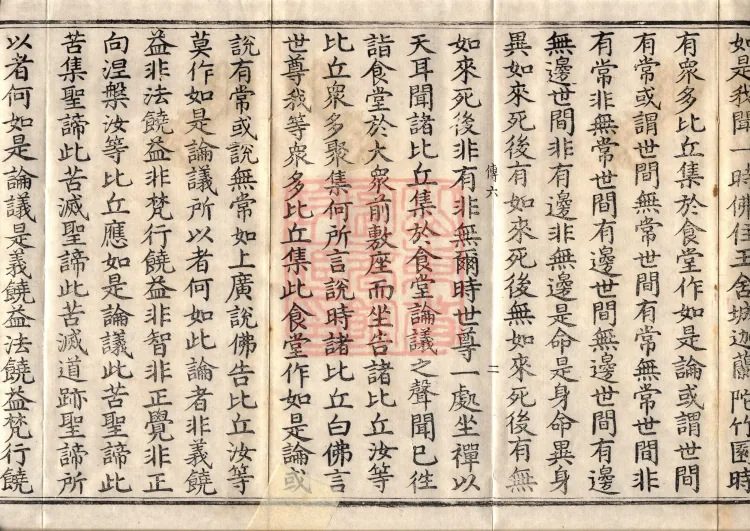 如是我聞一時佛住王舍城迦蘭陀竹園時
有眾多比丘集於食堂作如是論或謂世間
有常或謂世間無常世間有常無常世間非
有常非無常世間有邊世間無邊世間有邊
無邊世間非有邊非無邊是命是身命異身
異如來死後有如來死後無如來死後有無
傳六 二
如來死後非有非無爾時世尊一處坐禪以
天耳聞諸比丘集於食堂論議之聲聞已往
詣食堂於大眾前敷座而坐告諸比丘汝等
比丘眾多聚集何所言說時諸比丘白佛言
世尊我等眾多比丘集此食堂作如是論或
說有常或說無常如上廣說佛告比丘汝等
莫作如是論議所以者何如此論者非義饒
益非法饒益非梵行饒益非智非正覺非正
向涅槃汝等比丘應如是論議此苦聖諦此
苦集聖諦此苦滅聖諦此苦滅道跡聖諦所
以者何如是論議是義饒益法饒益梵行饒